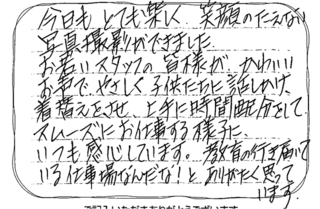 今日も とても楽しく 笑顔のたえない
写真撮影ができました.
お若いスタッフの皆様が、かわいい
お声で、やさしく子供たちに話しかけ、
着替えをさせ、上手に時間配分をして
スムーズにお仕事する様子に、
いつも感じしています。教育の行き届いて
いる仕事場なんだな!と ありがたく思って
います.
ご記入いただきありがとうございます